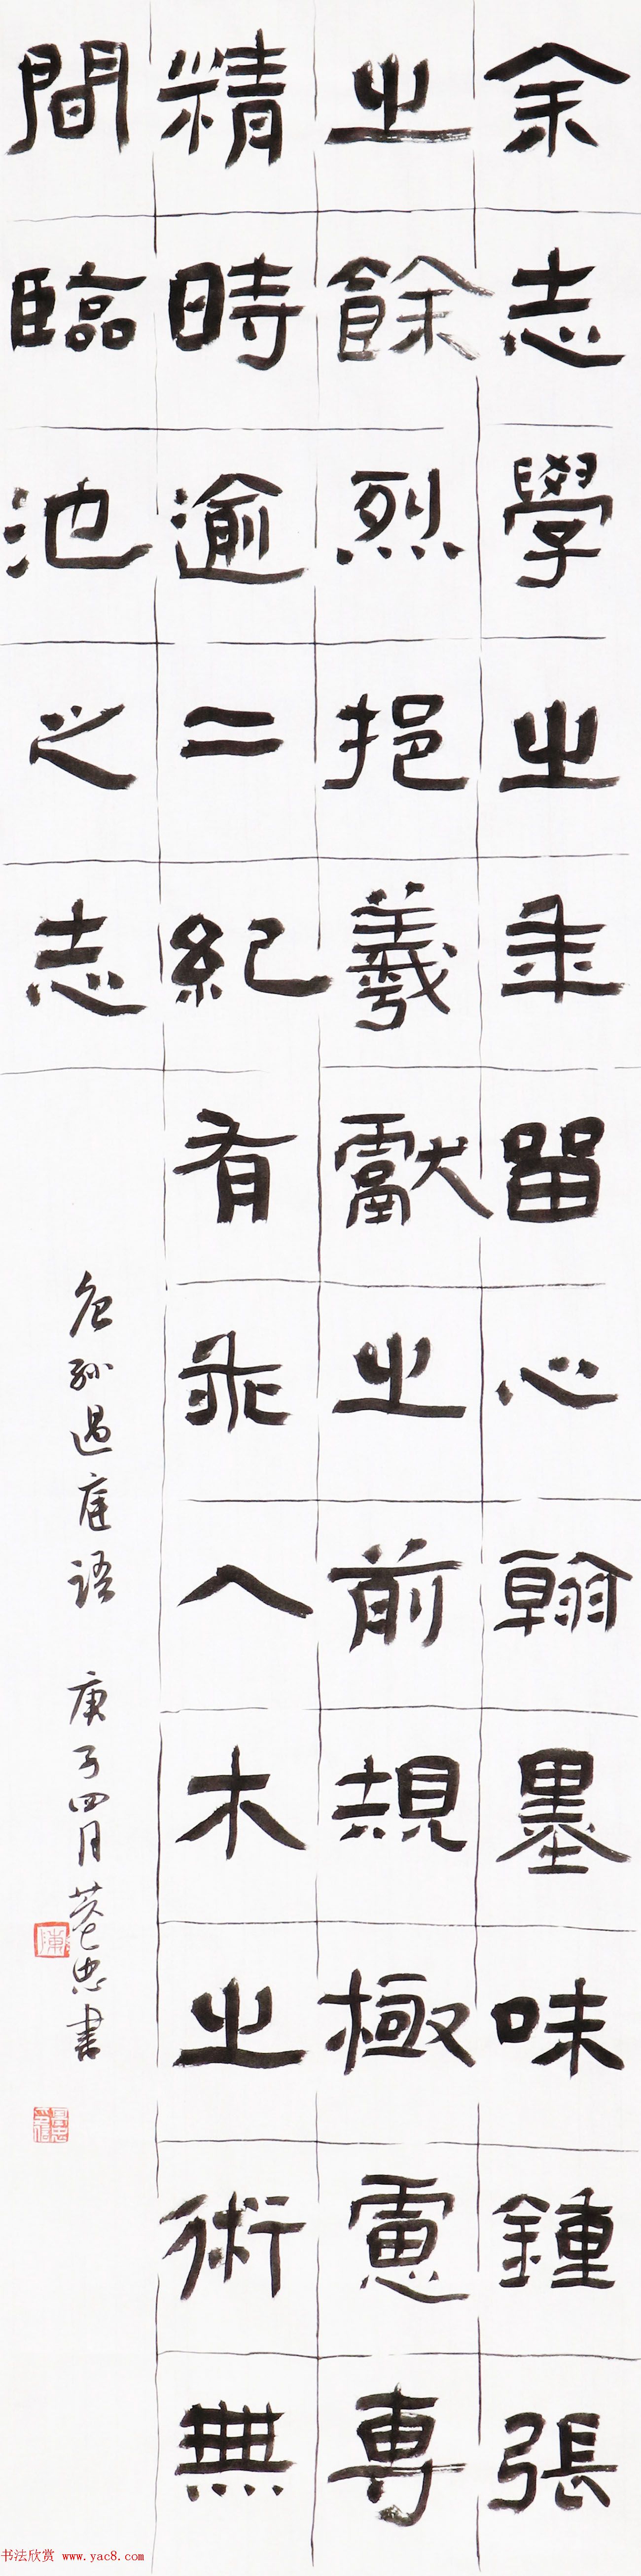 余志學之年留心翰墨味鍾張
之餘烈挹羲獻之前規極慮專
精時逾二紀有乖入木之術無
間臨池之志
孫過庭語 庚子四月 忠書
书法欣赏 www.yac8.com